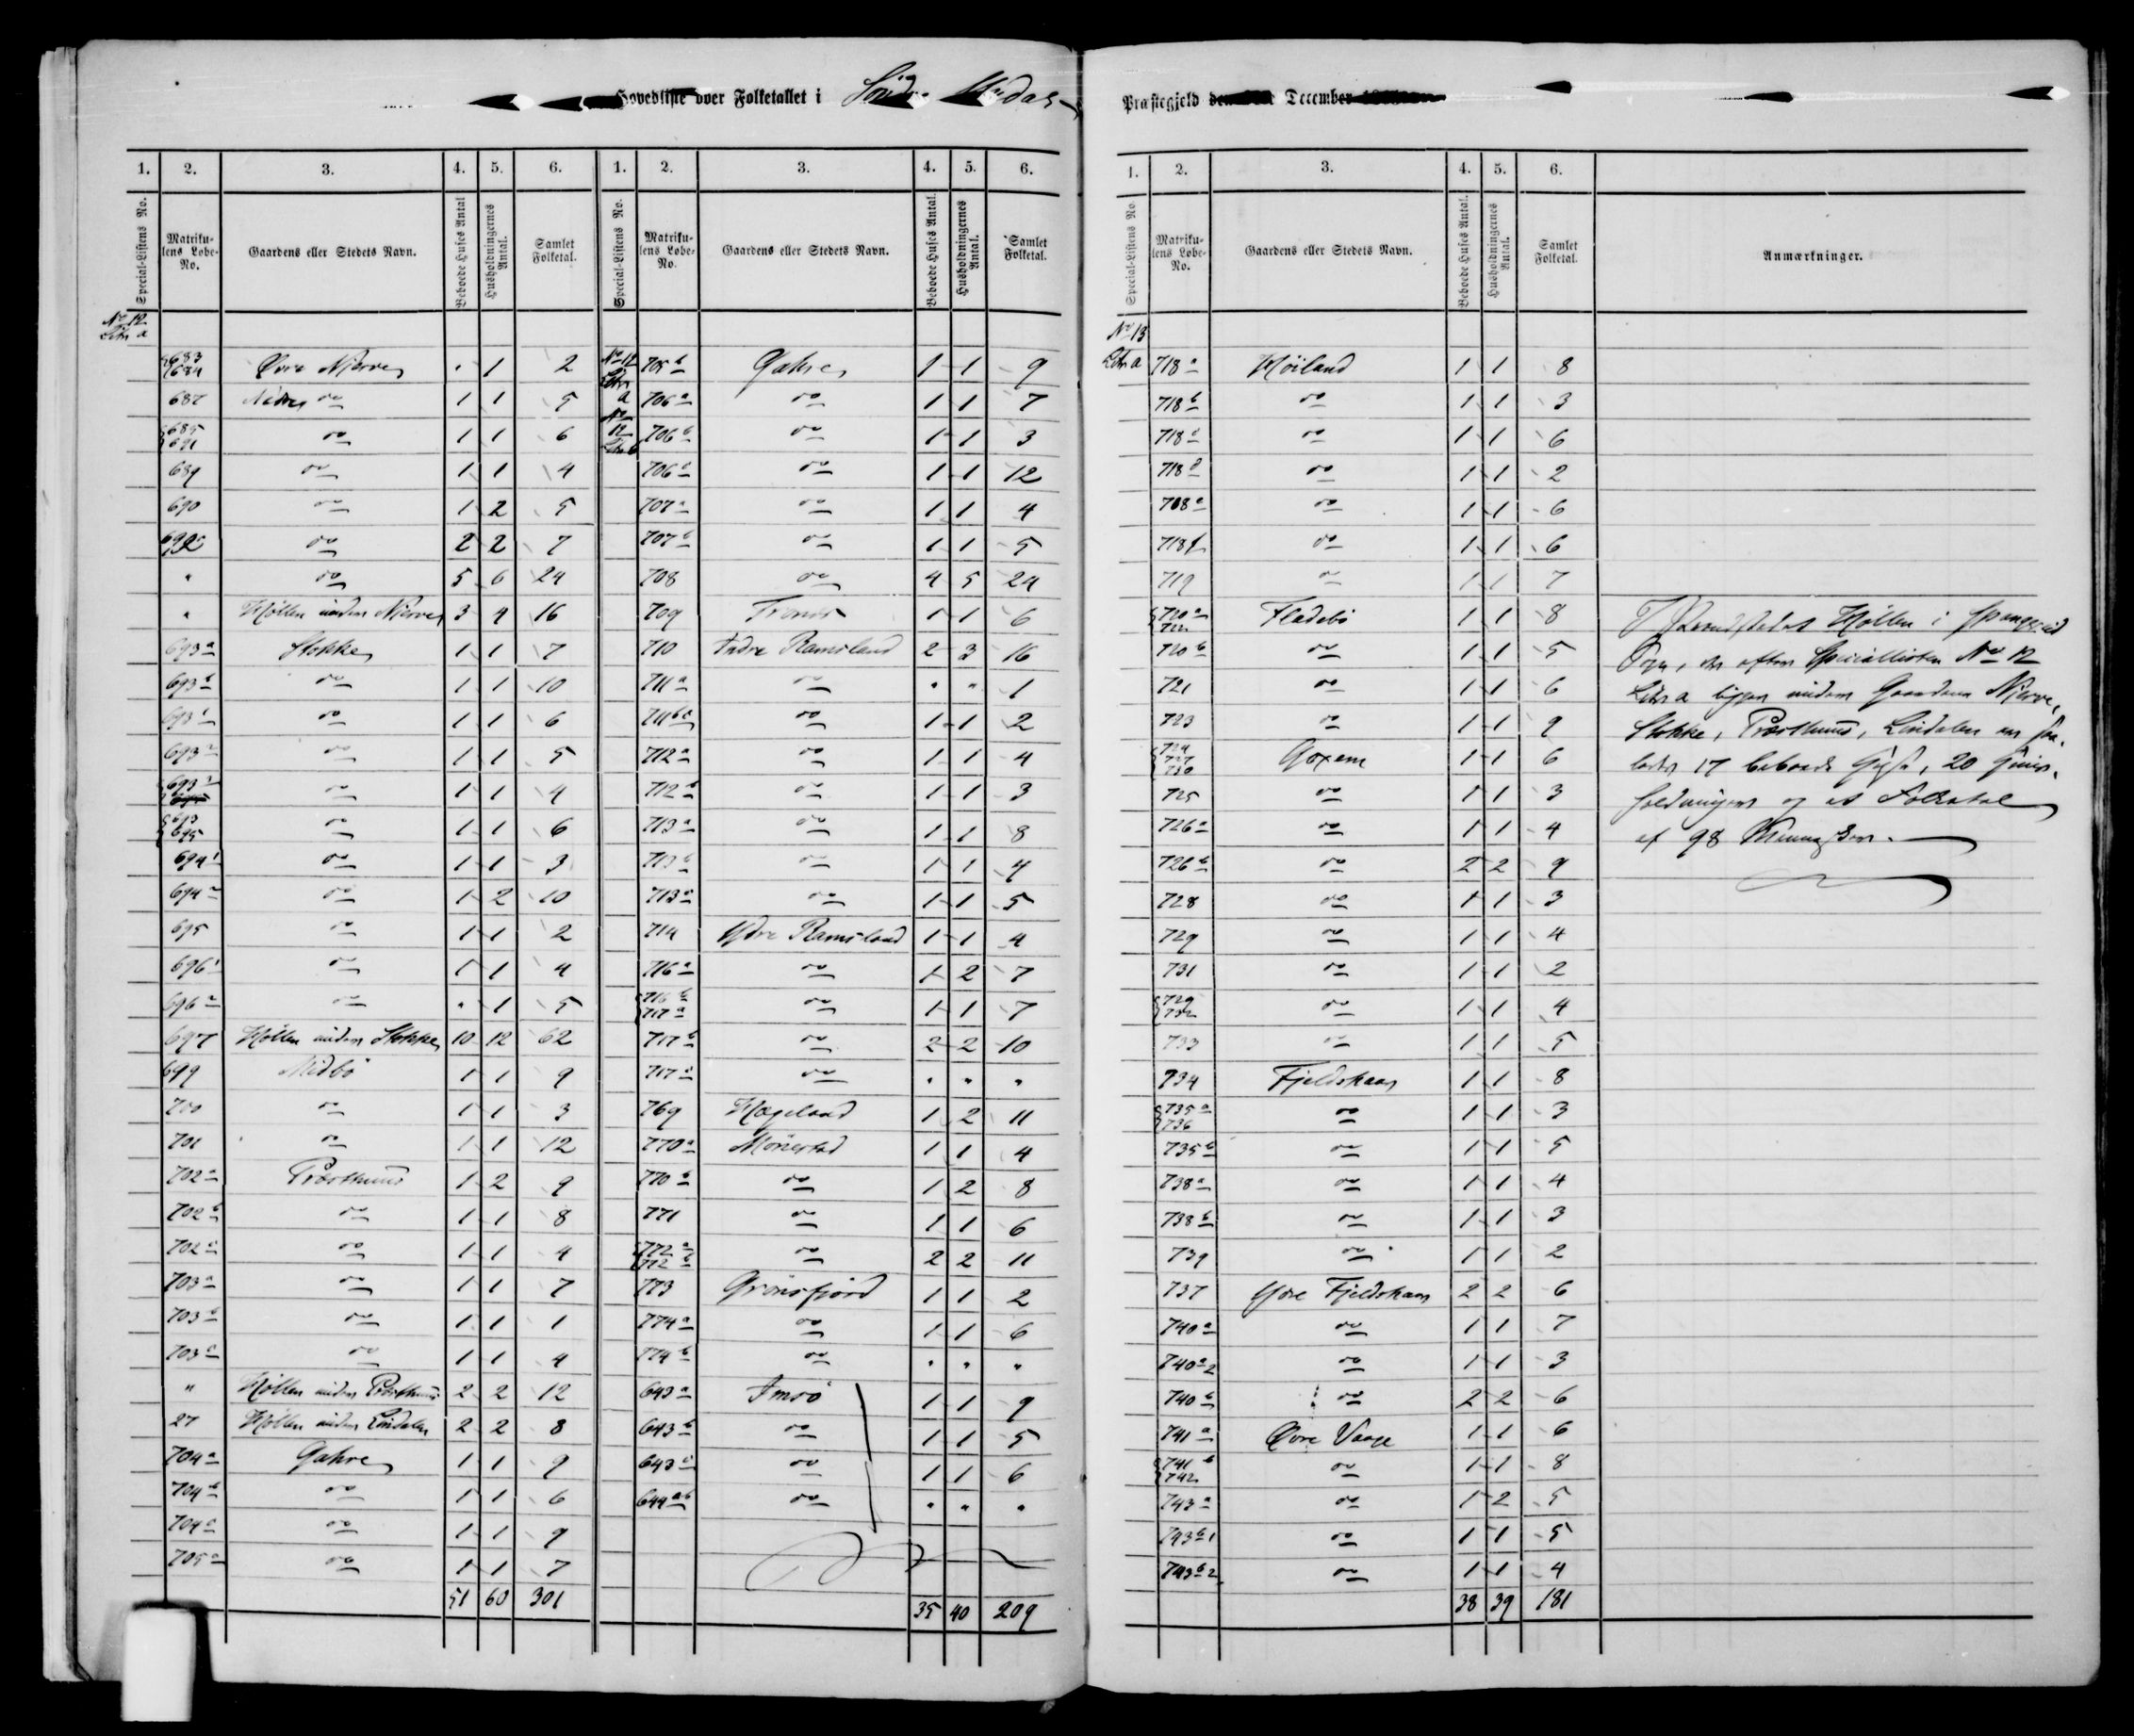 Hovedliste over Folketallet i Søndre Undals
Præstegjeld den December
1. 2. 3. 4. 5. 6. 1. 2. 3. 4. 5. 6.
Special-Listens No. Matrikulens Løbe-No. Gaardens eller Stedets Navn. Beboede Huses Antal Husholdningernes Antal. Samlet Folketal. Special-Listens No. Matrikulens Løbe-No. Gaardens eller Stedets Navn. Beboede Huses Antal. Husholdningernes Antal. Samlet Folketal.
No 12
Litr a
683 684 Øvre Njerve " 1 2
687 Nedre do 1 1 5
685 691 do 1 1 6
689 do 1 1 4
690 do 1 2 5
692 do 2 2 7
" do 5 6 24
" Høllen under Njerve 3 4 16
693a Stokke 1 1 7
693b do 1 1 10
693c do 1 1 6
693 do 1 1 5
693 do 1 1 4
693 695 do 1 1 6
694 do 1 1 3
694 do 1 2 10
695 do 1 1 2
696 do 1 1 4
696 do " 1 5
697 Høllen under Stokke 10 12 62
699 Midbø 1 1 9
700 do 1 1 3
701 do 1 1 12
702a Præsthuus 1 2 9
702b do 1 1 8
702c do 1 1 4
703a do 1 1 7
703b do 1 1 1
703c do 1 1 4
" Høllen under Præsthuus 2 2 12
27 Høllen under Lindalen 2 2 8
704a Gahre 1 1 9
704b do 1 1 6
704c do 1 1 9
705a do 1 1 7
51 60 301
No 12 Litr a 705b Gahre 1 1 9
706a do 1 1 7
No 12 Litr b 706b do 1 1 3
706c do 1 1 12
707a do 1 1 4
707b do 1 1 5
708 do 4 5 24
709 1 1 6
710 Indre Ramsland 2 3 16
711a do " " 1
711bc do 1 1 2
712a do 1 1 4
712b do 1 1 3
713a do 1 1 8
713b do 1 1 4
713c do 1 1 5
714 Ydre Ramsland 1 1 4
716a do 1 2 7
716b 717a do 1 1 7
717b do 2 2 10
717c do " " "
769 Hageland 1 2 11
770a 1 1 4
770b do 1 2 8
771 do 1 1 6
772a 772b do 2 2 11
773 Grønsfjord 1 1 2
774a do 1 1 6
774b do " " "
643a Imsø 1 1 9
643b do 1 1 5
643c do 1 1 6
644ab do " " "
35 40 209
1. 2. 3. 4. 5. 6.
Special-Listens No Matrikulens Løbe-No. Gaardens eller Stedets Navn. Beboede Huses Antal. Husholdningernes Antal. Samlet Folketal. Anmærkninger.
No 13
Litr a 718a Høiland 1 1 8
718b do 1 1 3
718c do 1 1 6
718d do 1 1 2
708a do 1 1 6
718f do 1 1 6
719 do 1 1 7
720a 722 Fladebø 1 1 8
720b do 1 1 5
721 do 1 1 6
723 do 1 1 9
724 727 730 Goxem 1 1 6
725 do 1 1 3
726a do 1 1 4
726b do 2 2 9
728 do 1 1 3
729 do 1 1 4
731 do 1 1 2
729 732 do 1 1 4
733 do 1 1 5
734 Fjeldskaar 1 1 8
735a 736 do 1 1 3
735b do 1 1 5
738a do 1 1 4
738b do 1 1 3
739 do 1 1 2
737 Ydre Fjeldskaar 2 2 6
740a do 1 1 7
740a2 do 1 1 3
740b do 2 2 6
741a Øvre Vaage 1 1 6
741b 742 do 1 1 8
743a do 1 2 5
743b1 do 1 1 5
743b2 do 1 1 4
38 39 181
I Strandstedet Høllen i Spangereid
Sogn, der efter Speciallisten No 12
Litr a ligger under Gaardene Njerve,
Stokke, Præsthuus, Lindalen er saa-
ledes 17 beboede Huse, 20 Huus-
holdninger og et Folketal
af 98 Mennesker.